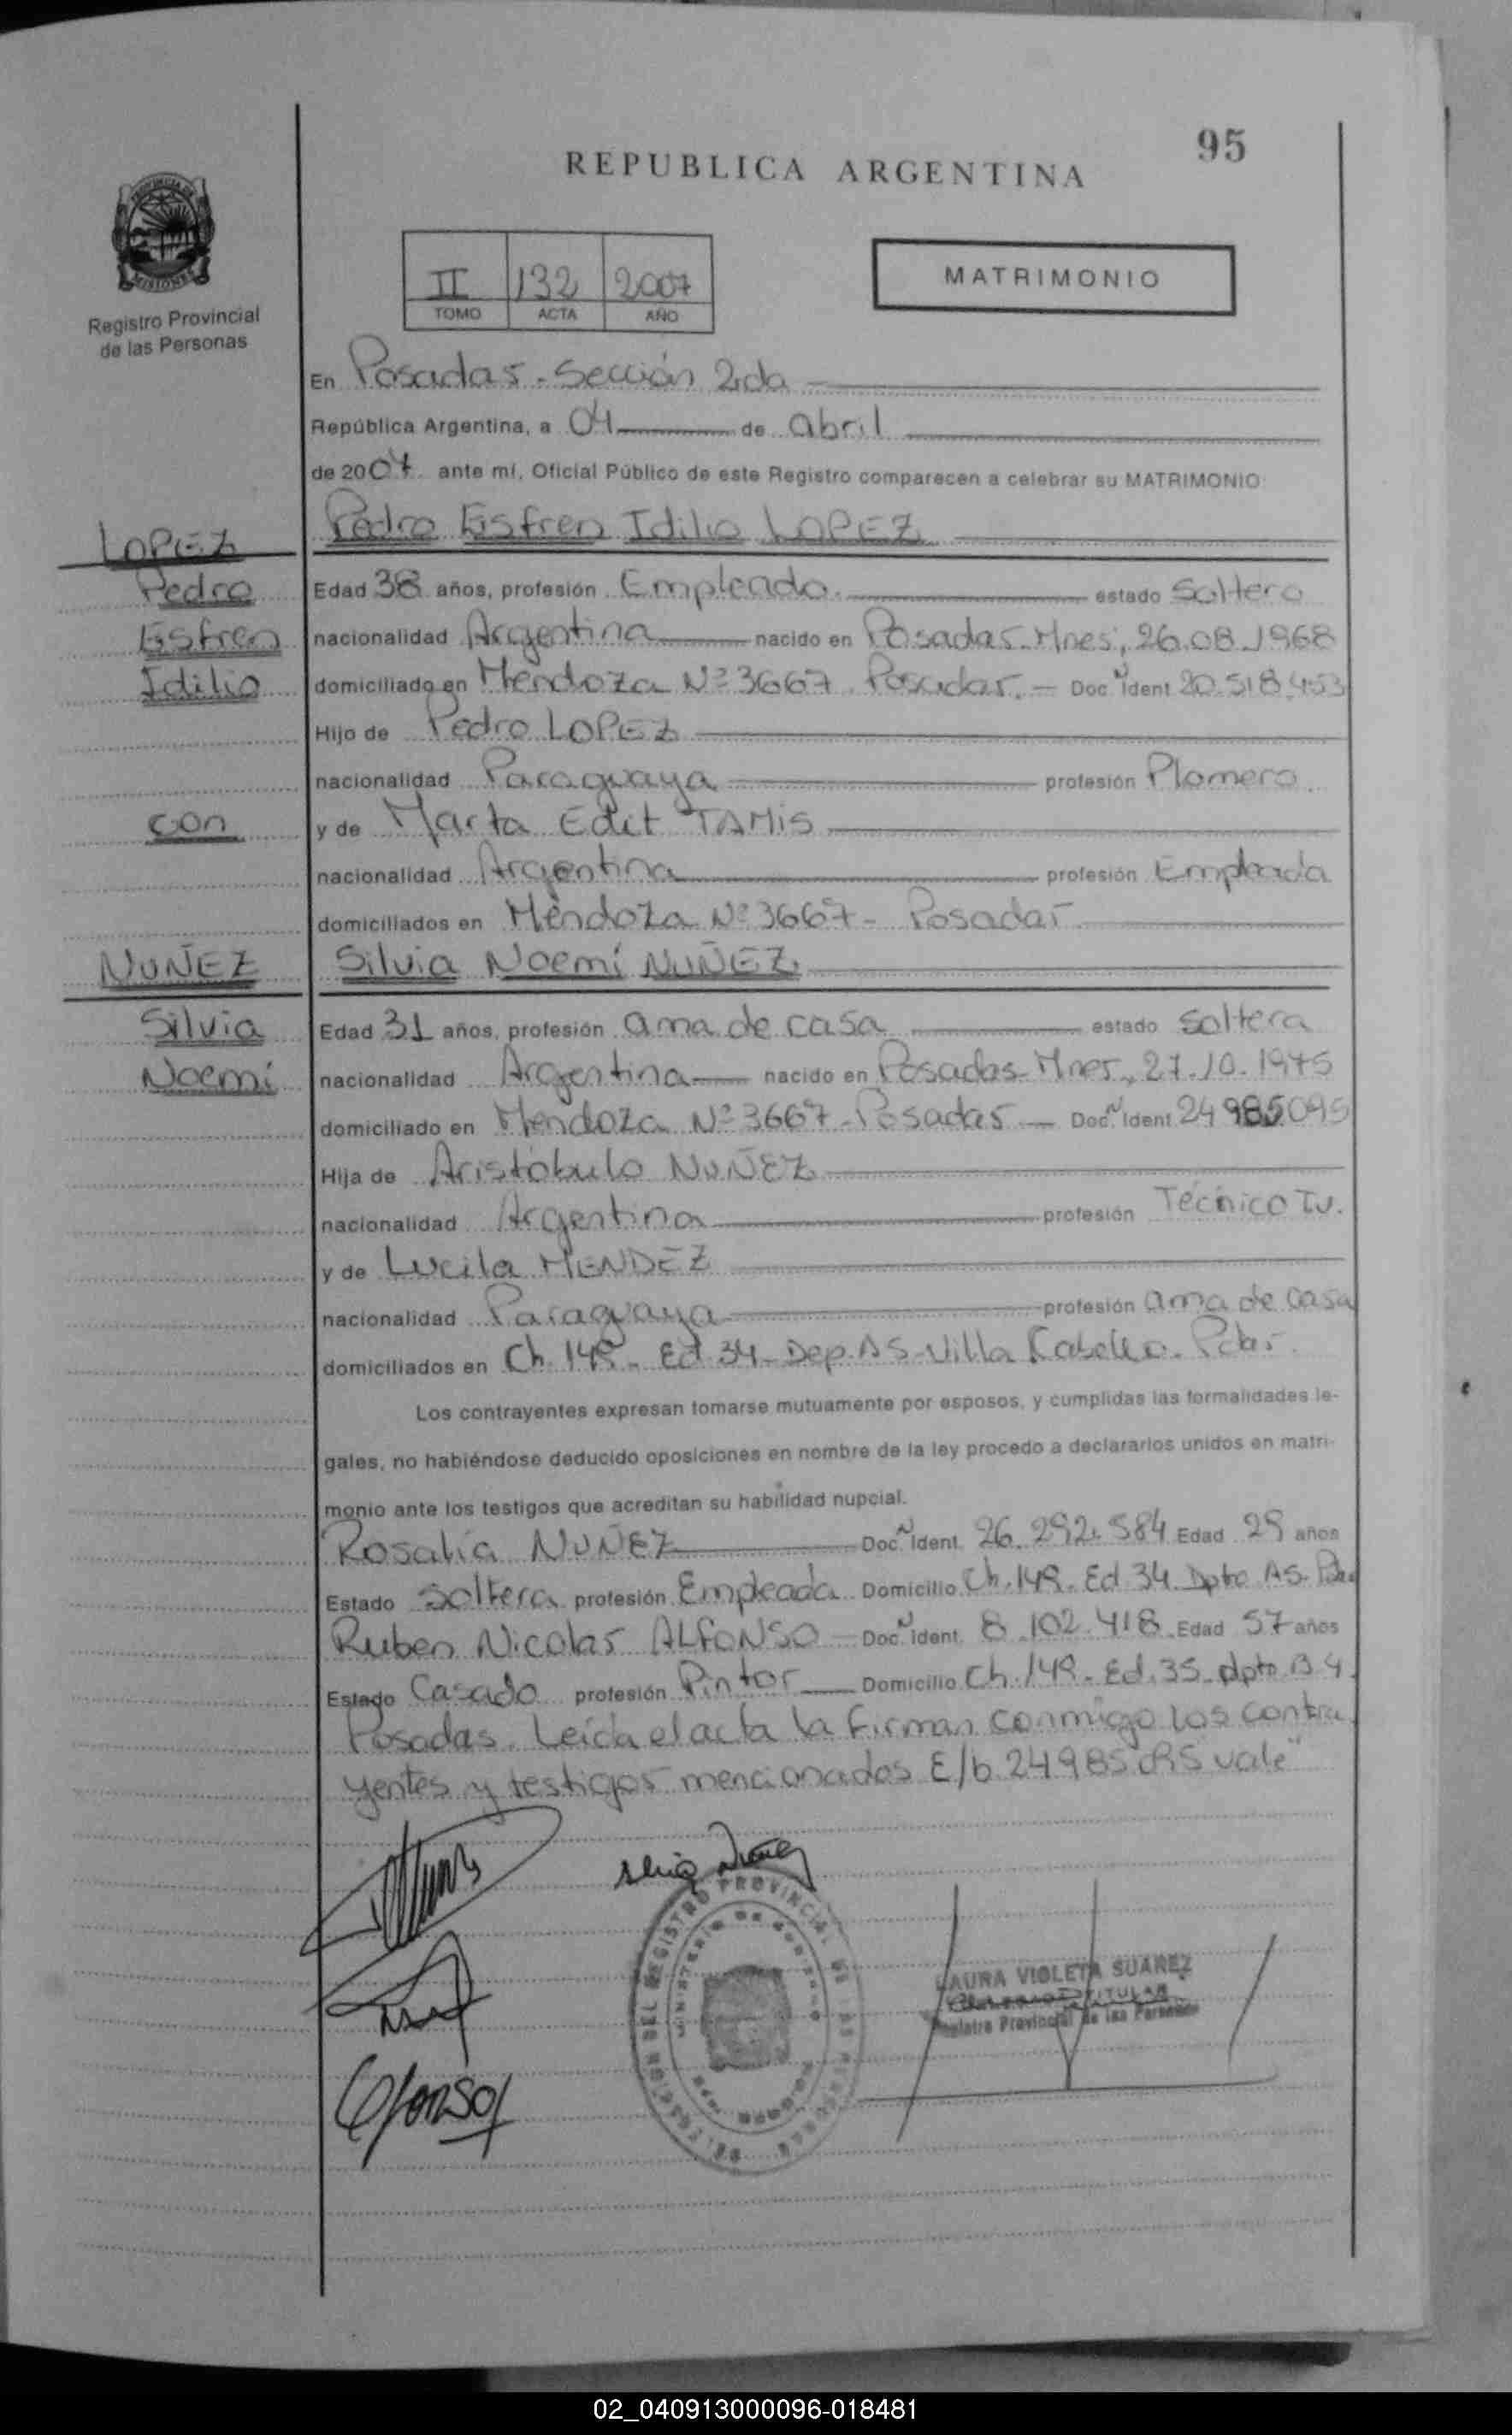 95
REPUBLICA ARGENTINA
PROVINCIA DE
MISIONES
Registro Provincial
de las Personas
II 132 2007
TOMO ACTA AÑO
MATRIMONIO
En Posadas - Sección 2da
República Argentina, a 04 de abril
de 2007 ante mí, Oficial Público de este Registro comparecen a celebrar su MATRIMONIO
LOPEZ Pedro Esfren Idilio LOPEZ
Pedro Edad 38 años, profesión Empleado. estado Soltero
Esfren nacionalidad Argentina nacido en Posadas - Mnes, 26.08.1968
Idilio domiciliado en Mendoza Nº 3667 Posadas. - Doc. N Ident 20.518.453
Hijo de Pedro LOPEZ
nacionalidad Paraguaya profesión Plomero.
con y de Marta Edit TAMIS
nacionalidad Argentina profesión Empleada
domiciliados en Mendoza Nº 3667 - Posadas
NUÑEZ Silvia Noemí NUÑEZ
Silvia Edad 31 años, profesión ama de casa estado soltera
Noemí nacionalidad Argentina nacido en Posadas - Mnes, 27.10.1975
domiciliado en Mendoza Nº 3667 - Posadas - Doc. N Ident 24985095
Hija de Aristóbulo NUÑEZ
nacionalidad Argentina profesión Técnico Tv.
y de Lucila MENDEZ
nacionalidad Paraguaya profesión ama de casa
domiciliados en Ch. 149 - Ed. 34 - Dep. A5 - Villa Cabello. Pdas.
Los contrayentes expresan tomarse mutuamente por esposos, y cumplidas las formalidades le-
gales, no habiéndose deducido oposiciones en nombre de la ley procedo a declararlos unidos en matri-
monio ante los testigos que acreditan su habilidad nupcial.
Rosalía NUÑEZ Doc. N Ident. 26.292.584 Edad 29 años
Estado Soltera profesión Empleada Domicilio Ch. 149. Ed 34 Dpto A5-
Ruben Nicolas ALFONSO Doc. N Ident. 8.102.418 Edad 57 años
Estado Casado profesión Pintor Domicilio Ch. 149 - Ed. 35 - dpto B 4.
Posadas. Leída el acta la firman conmigo los contra
yentes y testigos mencionados E/b 24985095 vale"
Silvia Nuñez
LAURA VIOLETA SUAREZ
TITULAR
Registro Provincial de las Personas
Alfonso
02_040913000096-018481